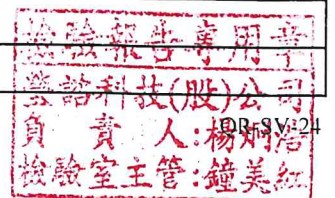 檢驗報告專用章
科技(股)公司
負責人:楊炳
QR-SV-24
檢驗室主管:鐘美紅